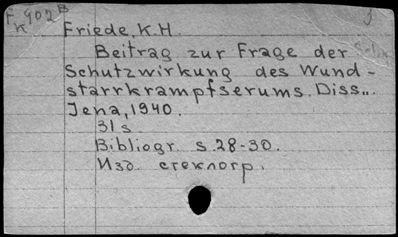 F 902 B
K
Friede, K.H.
Beitrag zur Frage der
Schutzwirkung des Wund-
starrkrampfserums. Diss..
Jena, 1940.
31 s.
Bibliogr. s. 28-30.
Изд. стеклогр.